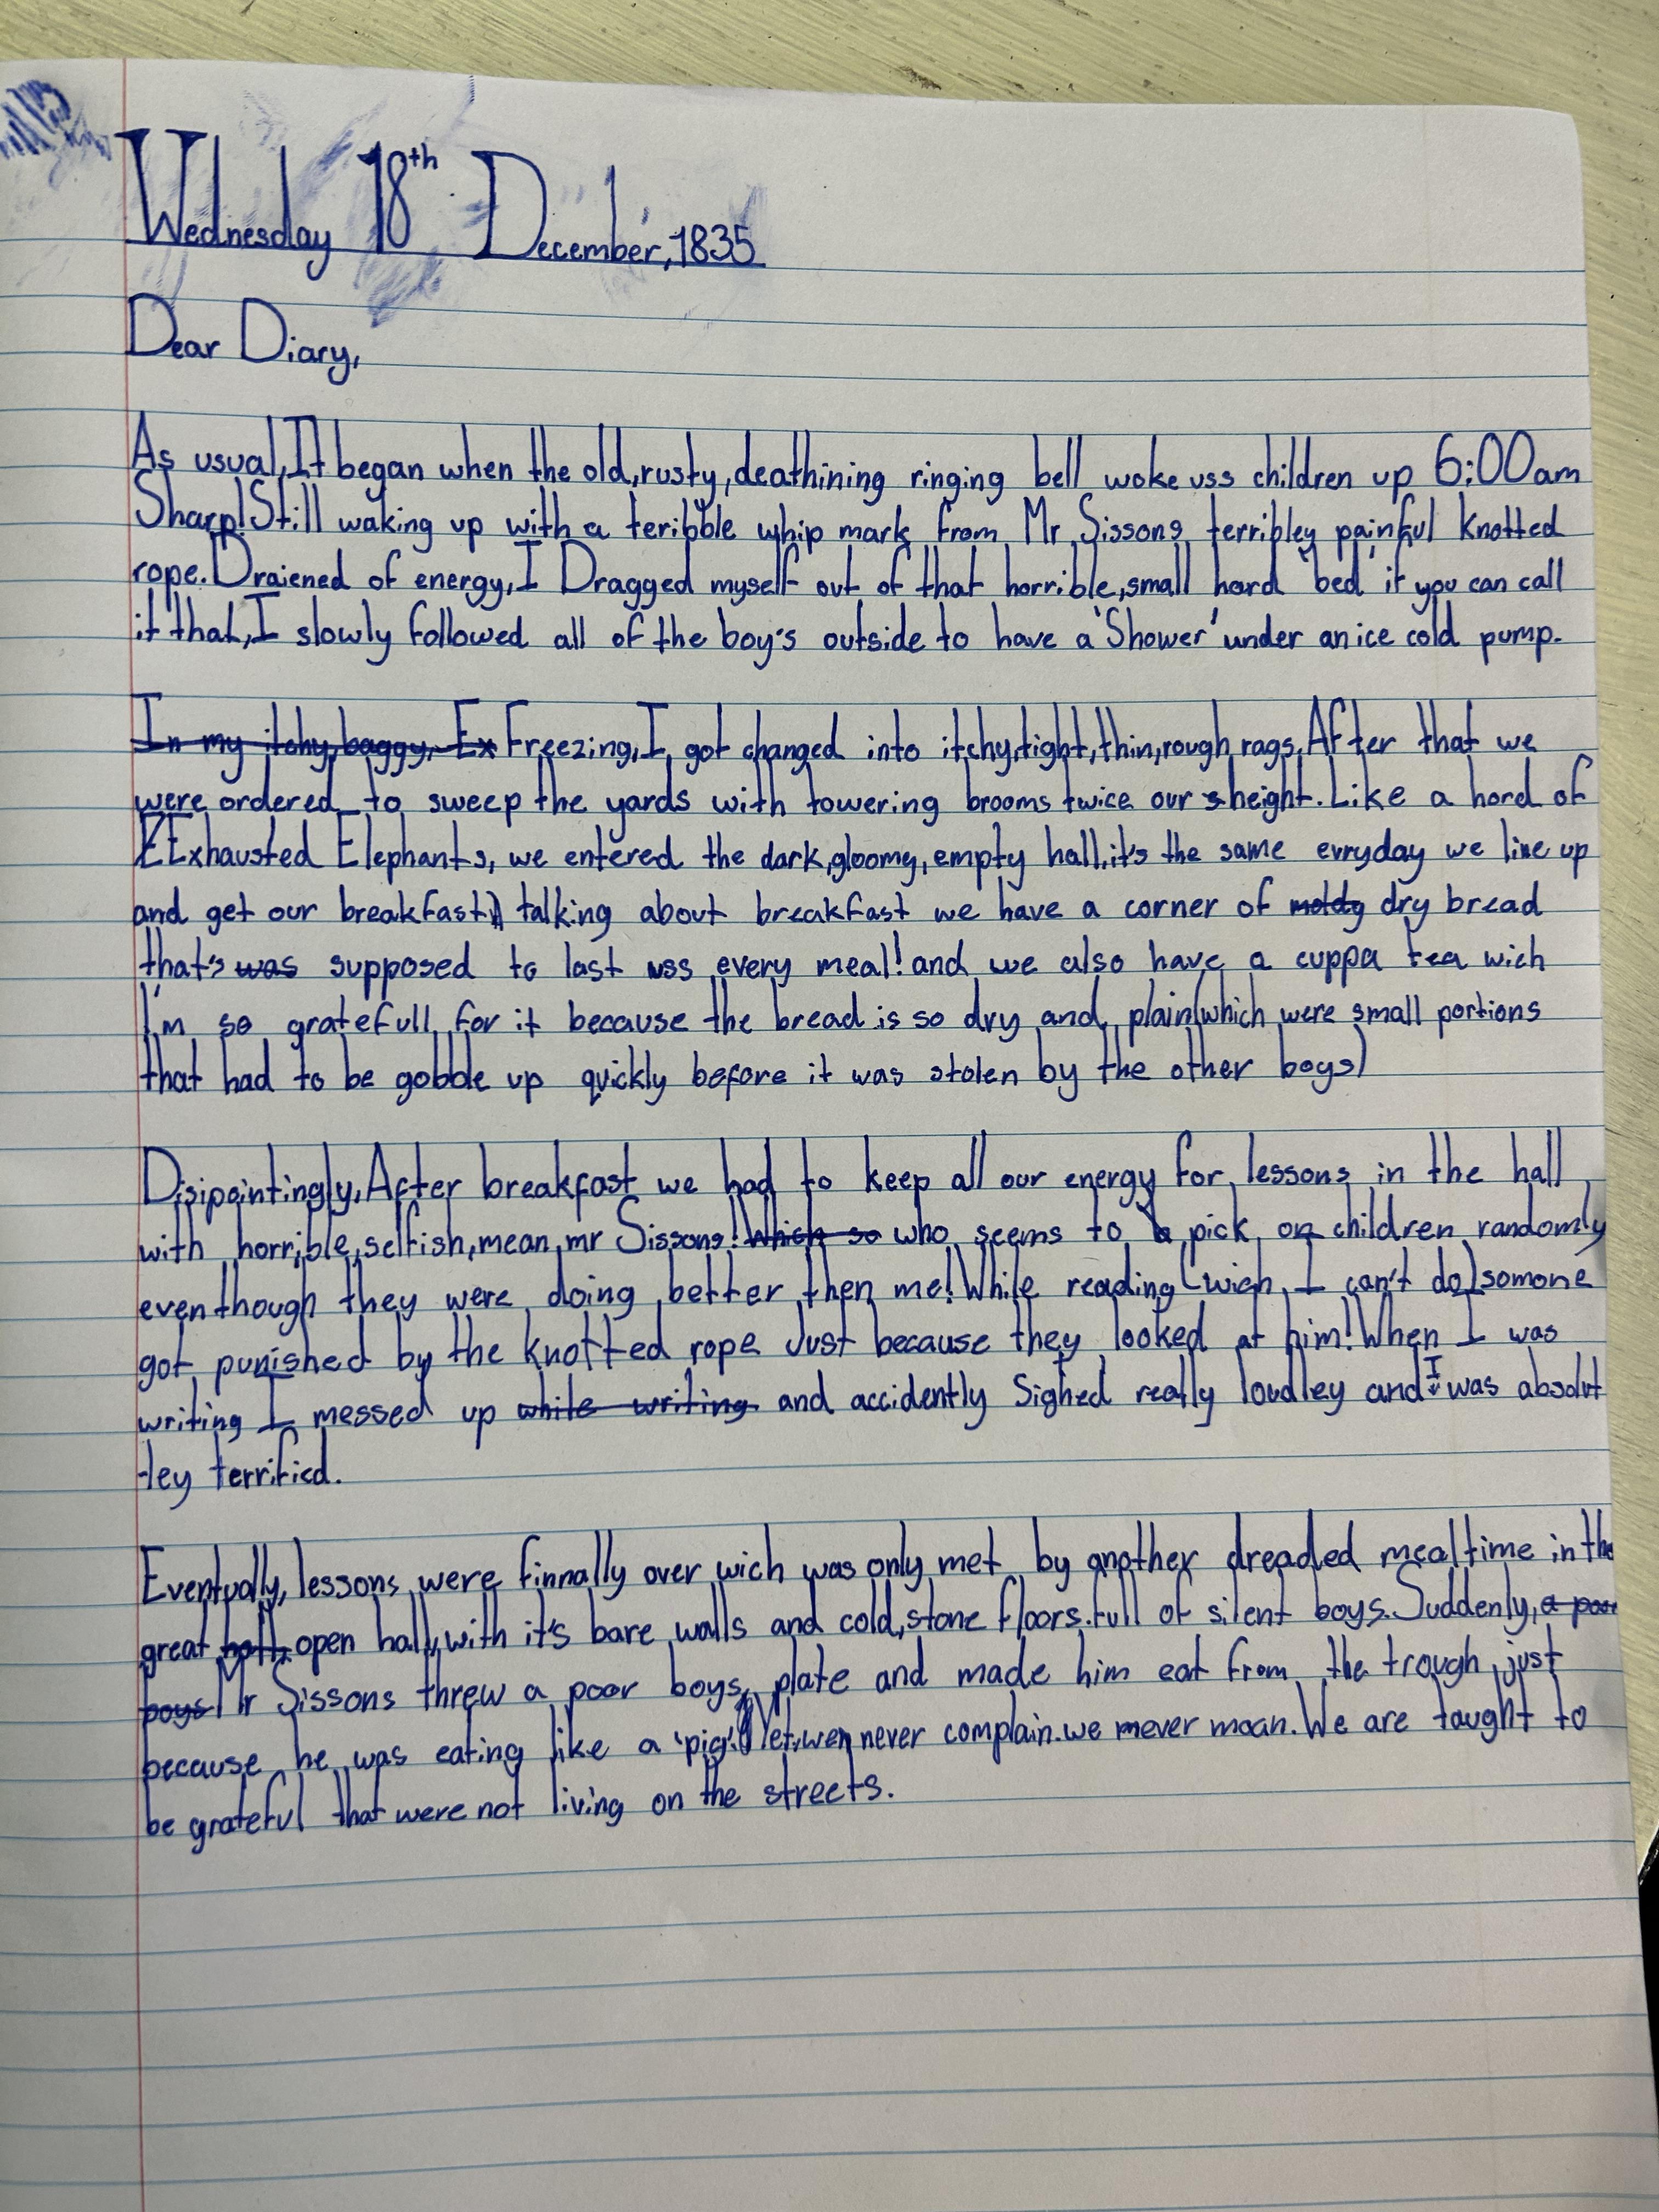 Wednesday 18th December, 1835
Dear Diary,
As usual, It began when the old, rusty, deathining ringing bell woke uss children up 6:00am
Sharp! Still waking up with a teribble whip mark from Mr Sissons terribley painful knotted
rope. Draiened of energy, I Dragged myself out of that horrible, small hard 'bed' if you can call
it that, I slowly followed all of the boy's outside to have a 'Shower' under an ice cold pump.
In my itchy, baggy, Ex Freezing, I got changed into itchy, tight, thin, rough rags. After that we
were ordered to sweep the yards with towering brooms twice our height. Like a hord of
Exhausted Elephants, we entered the dark, gloomy, empty hall, it's the same evryday we line up
and get our breakfast, talking about breakfast we have a corner of moldy dry bread
that's was supposed to last uss every meal! and we also have a cuppa tea wich
I'm so gratefull for it because the bread is so dry and plain (which were small portions
that had to be gobble up quickly before it was stolen by the other boys)
Disipointingly, After breakfast we had to keep all our energy for lessons in the hall
with horrible, selfish, mean, mr Sissons! Which so who seems to pick on children randomly
eventhough they were doing better then me! While reading (wich I can't do) somone
got punished by the knotted rope Just because they looked at him! When I was
writing I messed up while writing and accidently Sighed really loudley and I was absolut
-ley terrified.
Eventually, lessons were finnally over wich was only met by another dreaded mealtime in the
great hall, open hall, with it's bare walls and cold, stone floors. full of silent boys. Suddenly, a poor
boys Mr Sissons threw a poor boys plate and made him eat from the trough just
because he was eating like a 'pig'. Yet, we never complain. we never moan. We are taught to
be grateful that were not living on the streets.